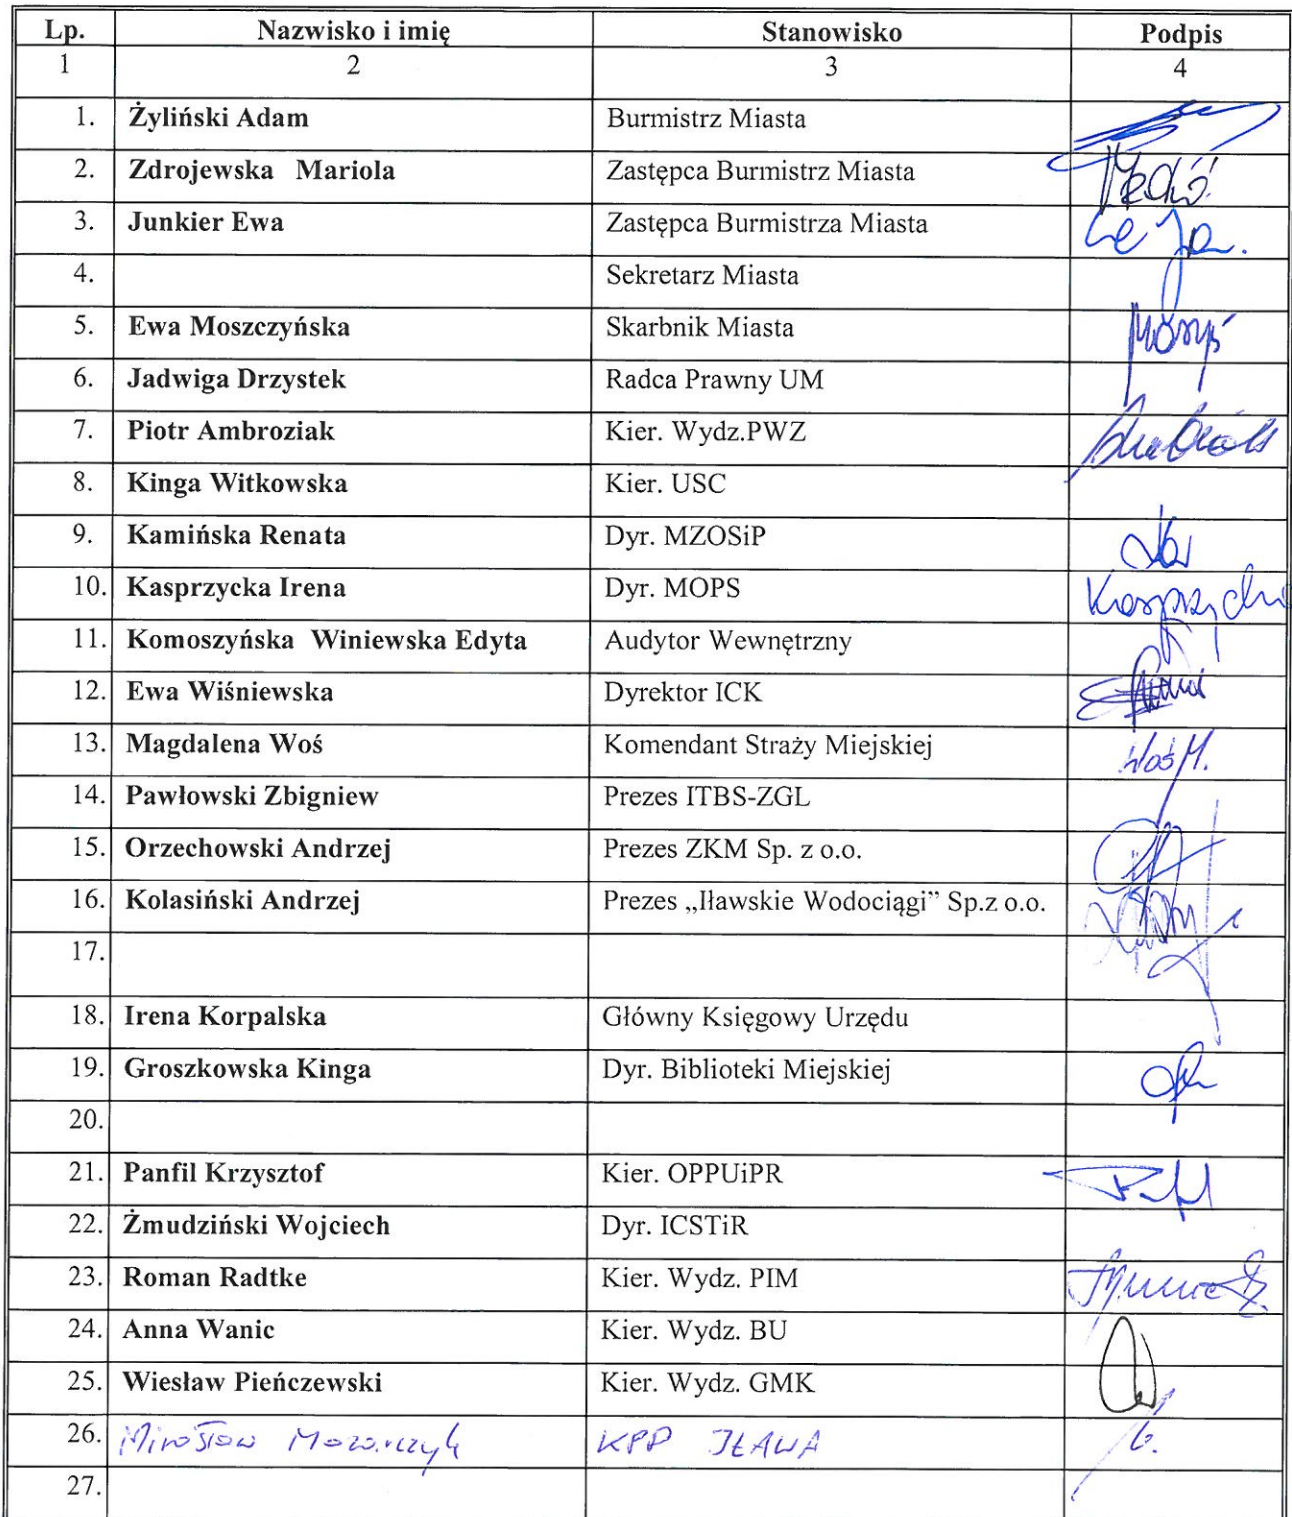 Lp. Nazwisko i imię Stanowisko Podpis
1 2 3 4
1. Żyliński Adam Burmistrz Miasta
2. Zdrojewska Mariola Zastępca Burmistrz Miasta
3. Junkier Ewa Zastępca Burmistrza Miasta
4. Sekretarz Miasta
5. Ewa Moszczyńska Skarbnik Miasta
6. Jadwiga Drzystek Radca Prawny UM
7. Piotr Ambroziak Kier. Wydz.PWZ
8. Kinga Witkowska Kier. USC
9. Kamińska Renata Dyr. MZOSiP
10. Kasprzycka Irena Dyr. MOPS
11. Komoszyńska Winiewska Edyta Audytor Wewnętrzny
12. Ewa Wiśniewska Dyrektor ICK
13. Magdalena Woś Komendant Straży Miejskiej Woś M.
14. Pawłowski Zbigniew Prezes ITBS-ZGL
15. Orzechowski Andrzej Prezes ZKM Sp. z o.o.
16. Kolasiński Andrzej Prezes „Iławskie Wodociągi” Sp.z o.o.
17.
18. Irena Korpalska Główny Księgowy Urzędu
19. Groszkowska Kinga Dyr. Biblioteki Miejskiej
20.
21. Panfil Krzysztof Kier. OPPUiPR
22. Żmudziński Wojciech Dyr. ICSTiR
23. Roman Radtke Kier. Wydz. PIM
24. Anna Wanic Kier. Wydz. BU
25. Wiesław Pieńczewski Kier. Wydz. GMK
26. Mirosław KPP IŁAWA
27.